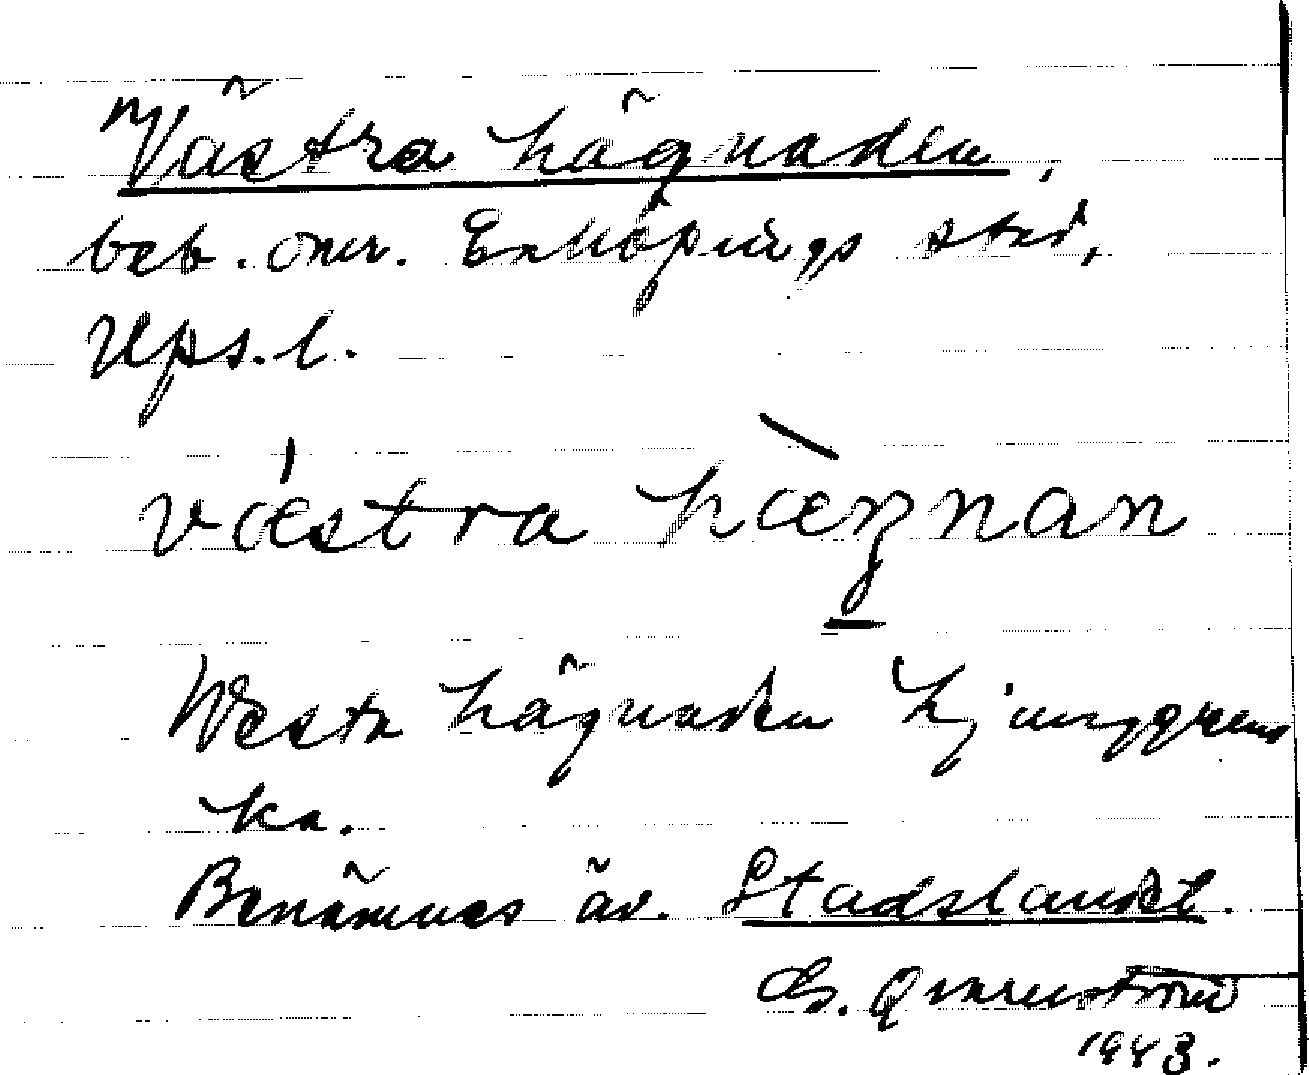 Västra hägnaden,
beb. omr. Enköpings stad,
Ups. l.
vǽstra hæ̀gnan
Westr hägnaden Ljunggrens
ka.
Benämnes äv. Stadslandet.
G. Qvarnström
1943.